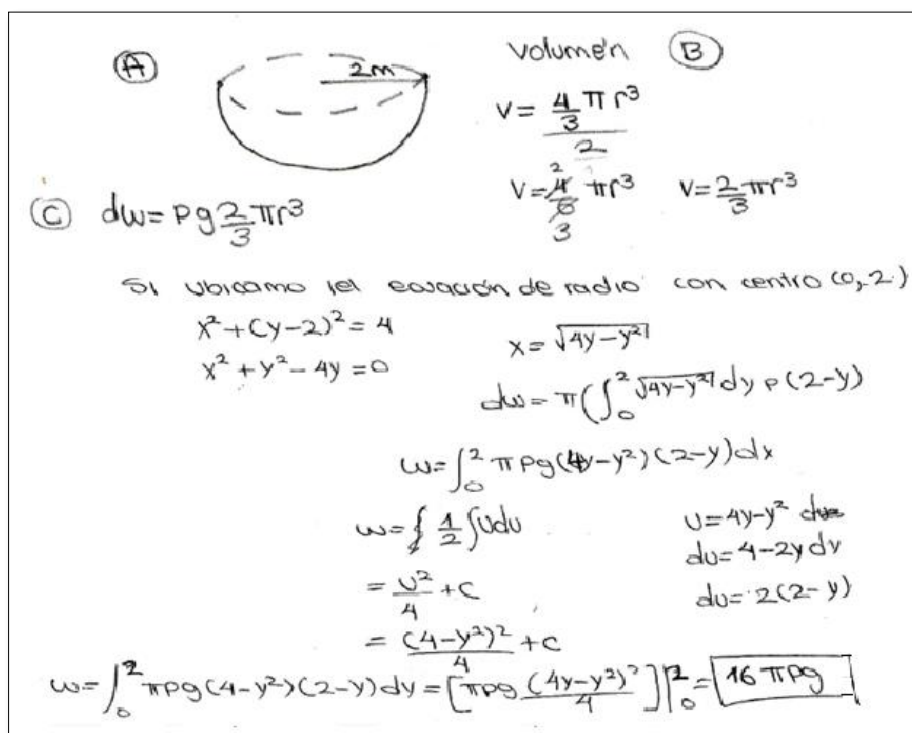 Ⓐ 2m
Volumén Ⓑ
V = (4/3 πr³)/2
V = 4/6 πr³ 2 3 V = 2/3 πr³
Ⓒ dw = pg 2/3 πr³
Si ubicamo el de radio con centro (0,2)
x² + (y-2)² = 4
x² + y² - 4y = 0
x = √(4y-y²)
dw = π(∫₀² √(4y-y²) dy p(2-y)
w = ∫₀² πpg(4y-y²)(2-y)dx
w = ∫ 1/2 ∫udu
= u²/4 + c
= (4-y²)²/4 + c
u = 4y-y²
du = 4-2y dy
du = 2(2-y)
w = ∫₀² πpg(4-y²)(2-y)dy = [πpg (4y-y²)²/4]|₀² = 16πpg